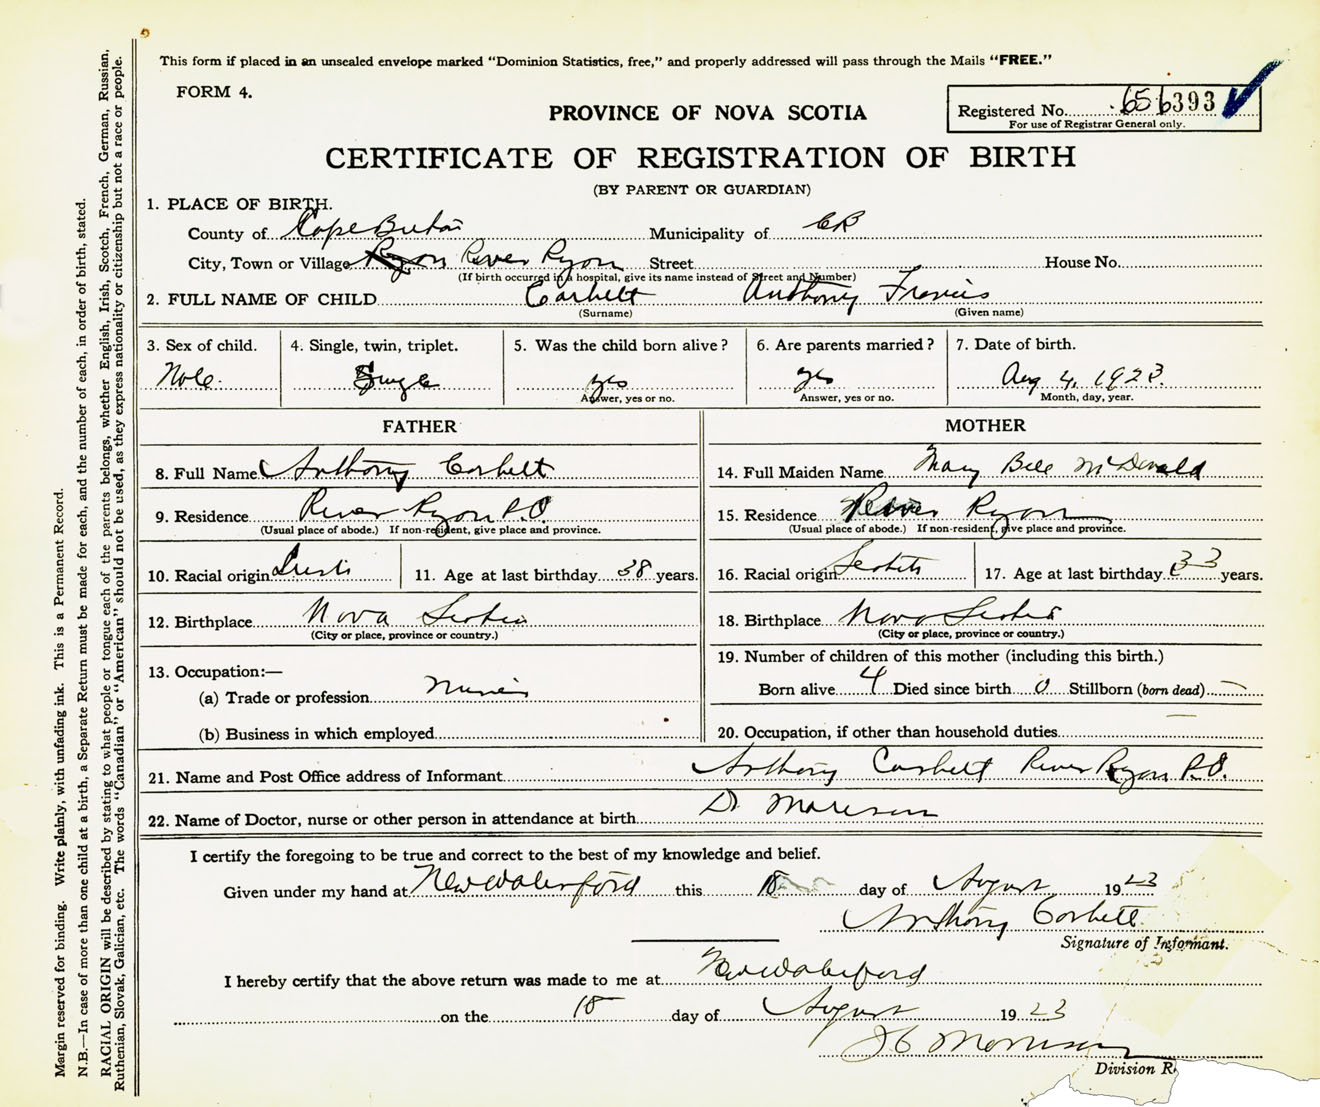 This form if placed in an unsealed envelope marked "Dominion Statistics, free," and properly addressed will pass through the Mails "FREE."
FORM 4.
PROVINCE OF NOVA SCOTIA
Registered No. 656393
For use of Registrar General only.
CERTIFICATE OF REGISTRATION OF BIRTH
(BY PARENT OR GUARDIAN)
1. PLACE OF BIRTH.
County of Cape Breton Municipality of CB
City, Town or Village River Ryan Street House No.
(If birth occurred in a hospital, give its name instead of Street and Number)
2. FULL NAME OF CHILD Corbett Anthony Francis
(Surname) (Given name)
3. Sex of child. 4. Single, twin, triplet. 5. Was the child born alive? 6. Are parents married? 7. Date of birth.
Male Single yes yes Aug 4, 1923.
Answer, yes or no. Answer, yes or no. Month, day, year.
FATHER MOTHER
8. Full Name Anthony Corbett 14. Full Maiden Name Mary Bell McDonald
9. Residence River Ryan P.O. 15. Residence River Ryan
(Usual place of abode.) If non-resident, give place and province. (Usual place of abode.) If non-resident, give place and province.
10. Racial origin Irish 11. Age at last birthday 38 years. 16. Racial origin Scotch 17. Age at last birthday 33 years.
12. Birthplace Nova Scotia 18. Birthplace Nova Scotia
(City or place, province or country.) (City or place, province or country.)
13. Occupation:— 19. Number of children of this mother (including this birth.)
(a) Trade or profession Born alive 4 Died since birth 0 Stillborn (born dead) —
(b) Business in which employed 20. Occupation, if other than household duties —
21. Name and Post Office address of Informant Anthony Corbett River Ryan P.O.
22. Name of Doctor, nurse or other person in attendance at birth Dr. Morrison
I certify the foregoing to be true and correct to the best of my knowledge and belief.
Given under my hand at New Waterford this 18 day of August 1923
Anthony Corbett
Signature of Informant.
I hereby certify that the above return was made to me at New Waterford
on the 18 day of August 1923
Morrison
Division R
Margin reserved for binding. Write plainly, with unfading ink. This is a Permanent Record.
N.B.—In case of more than one child at a birth, a Separate Return must be made for each, and the number of each, in order of birth, stated.
RACIAL ORIGIN will be described by stating to what people or tongue each of the parents belongs, whether English, Irish, Scotch, French, German, Russian,
Ruthenian, Slovak, Galician, etc. The words "Canadian" or "American" should not be used, as they express nationality or citizenship but not a race or people.